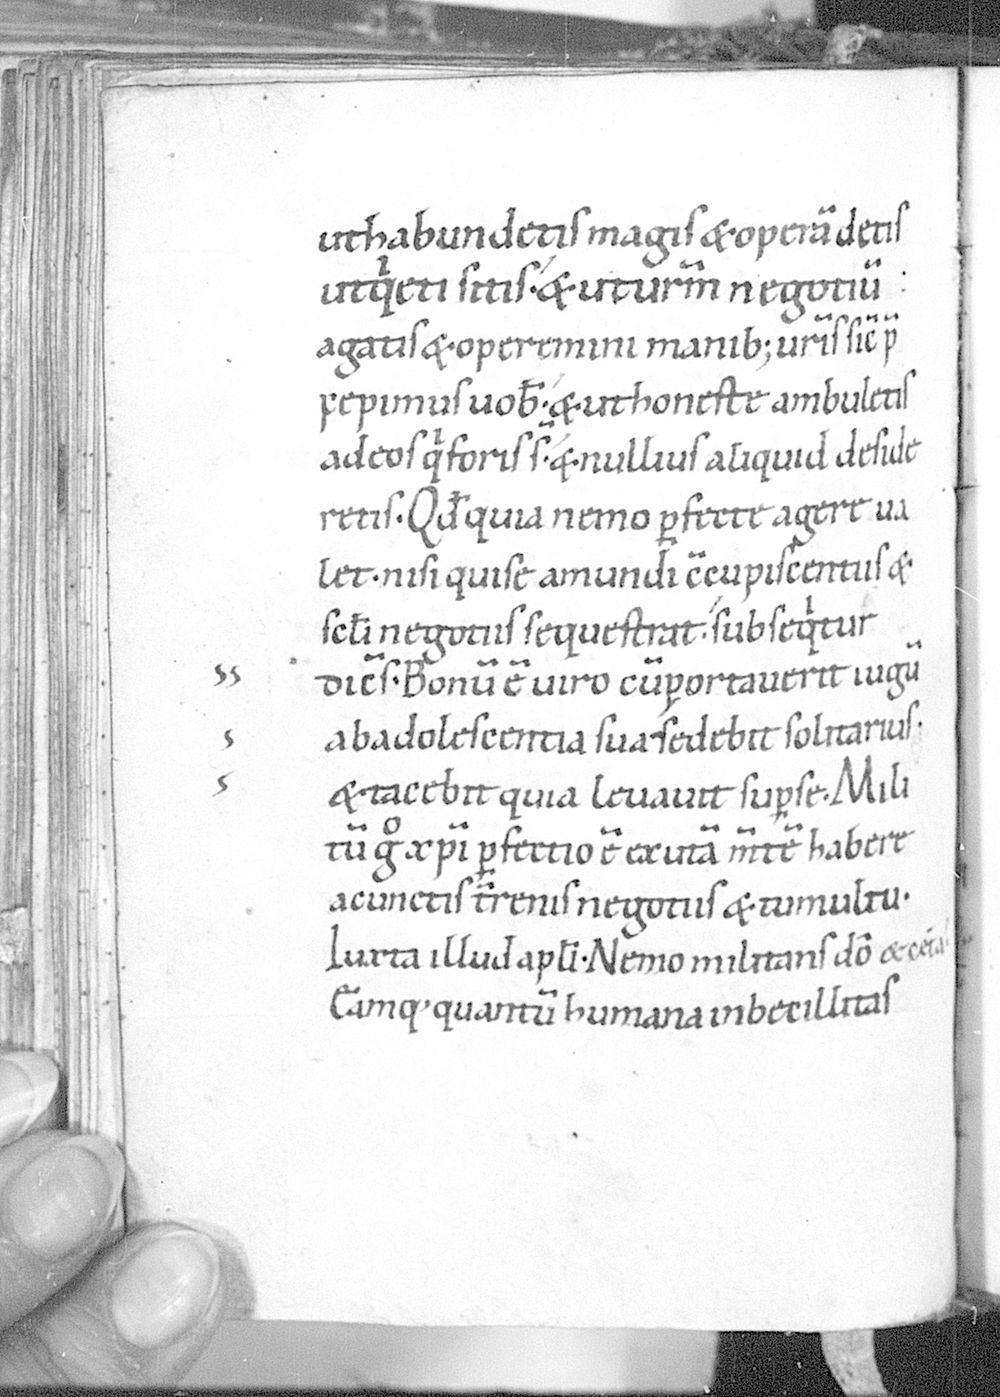 ut habundetis magis & operā detis
ut q̍eti sitis. & ut ur̄m negotiū
agatis & operemini manib; ur̄is sic̄ p̄
cepimus uob̄. & ut honeste ambuletis
ad eos q̍ foris s̄. & nullius aliquid deside
retis. Qd̄ quia nemo ꝑfecte agere ua
let. nisi qui se a mundi c̄cupiscentiis &
scl̄i negotiis sequestrat. subseq̍tur
dic̄s. Bonū ē uiro cū portauerit iugū
ab adolescentia sua. sedebit solitarius.
& tacebit quia leuauit supꝑ se. Mili
tū gͦ xp̄i ꝑfectio ē exutā m̄tē habere
a cunctis t̄renis negotiis & tumultu.
Iuxta illud apl̄i. Nemo militans dō & cet̄a
Etamq, quantū humana inbecillitas
ss
s
s